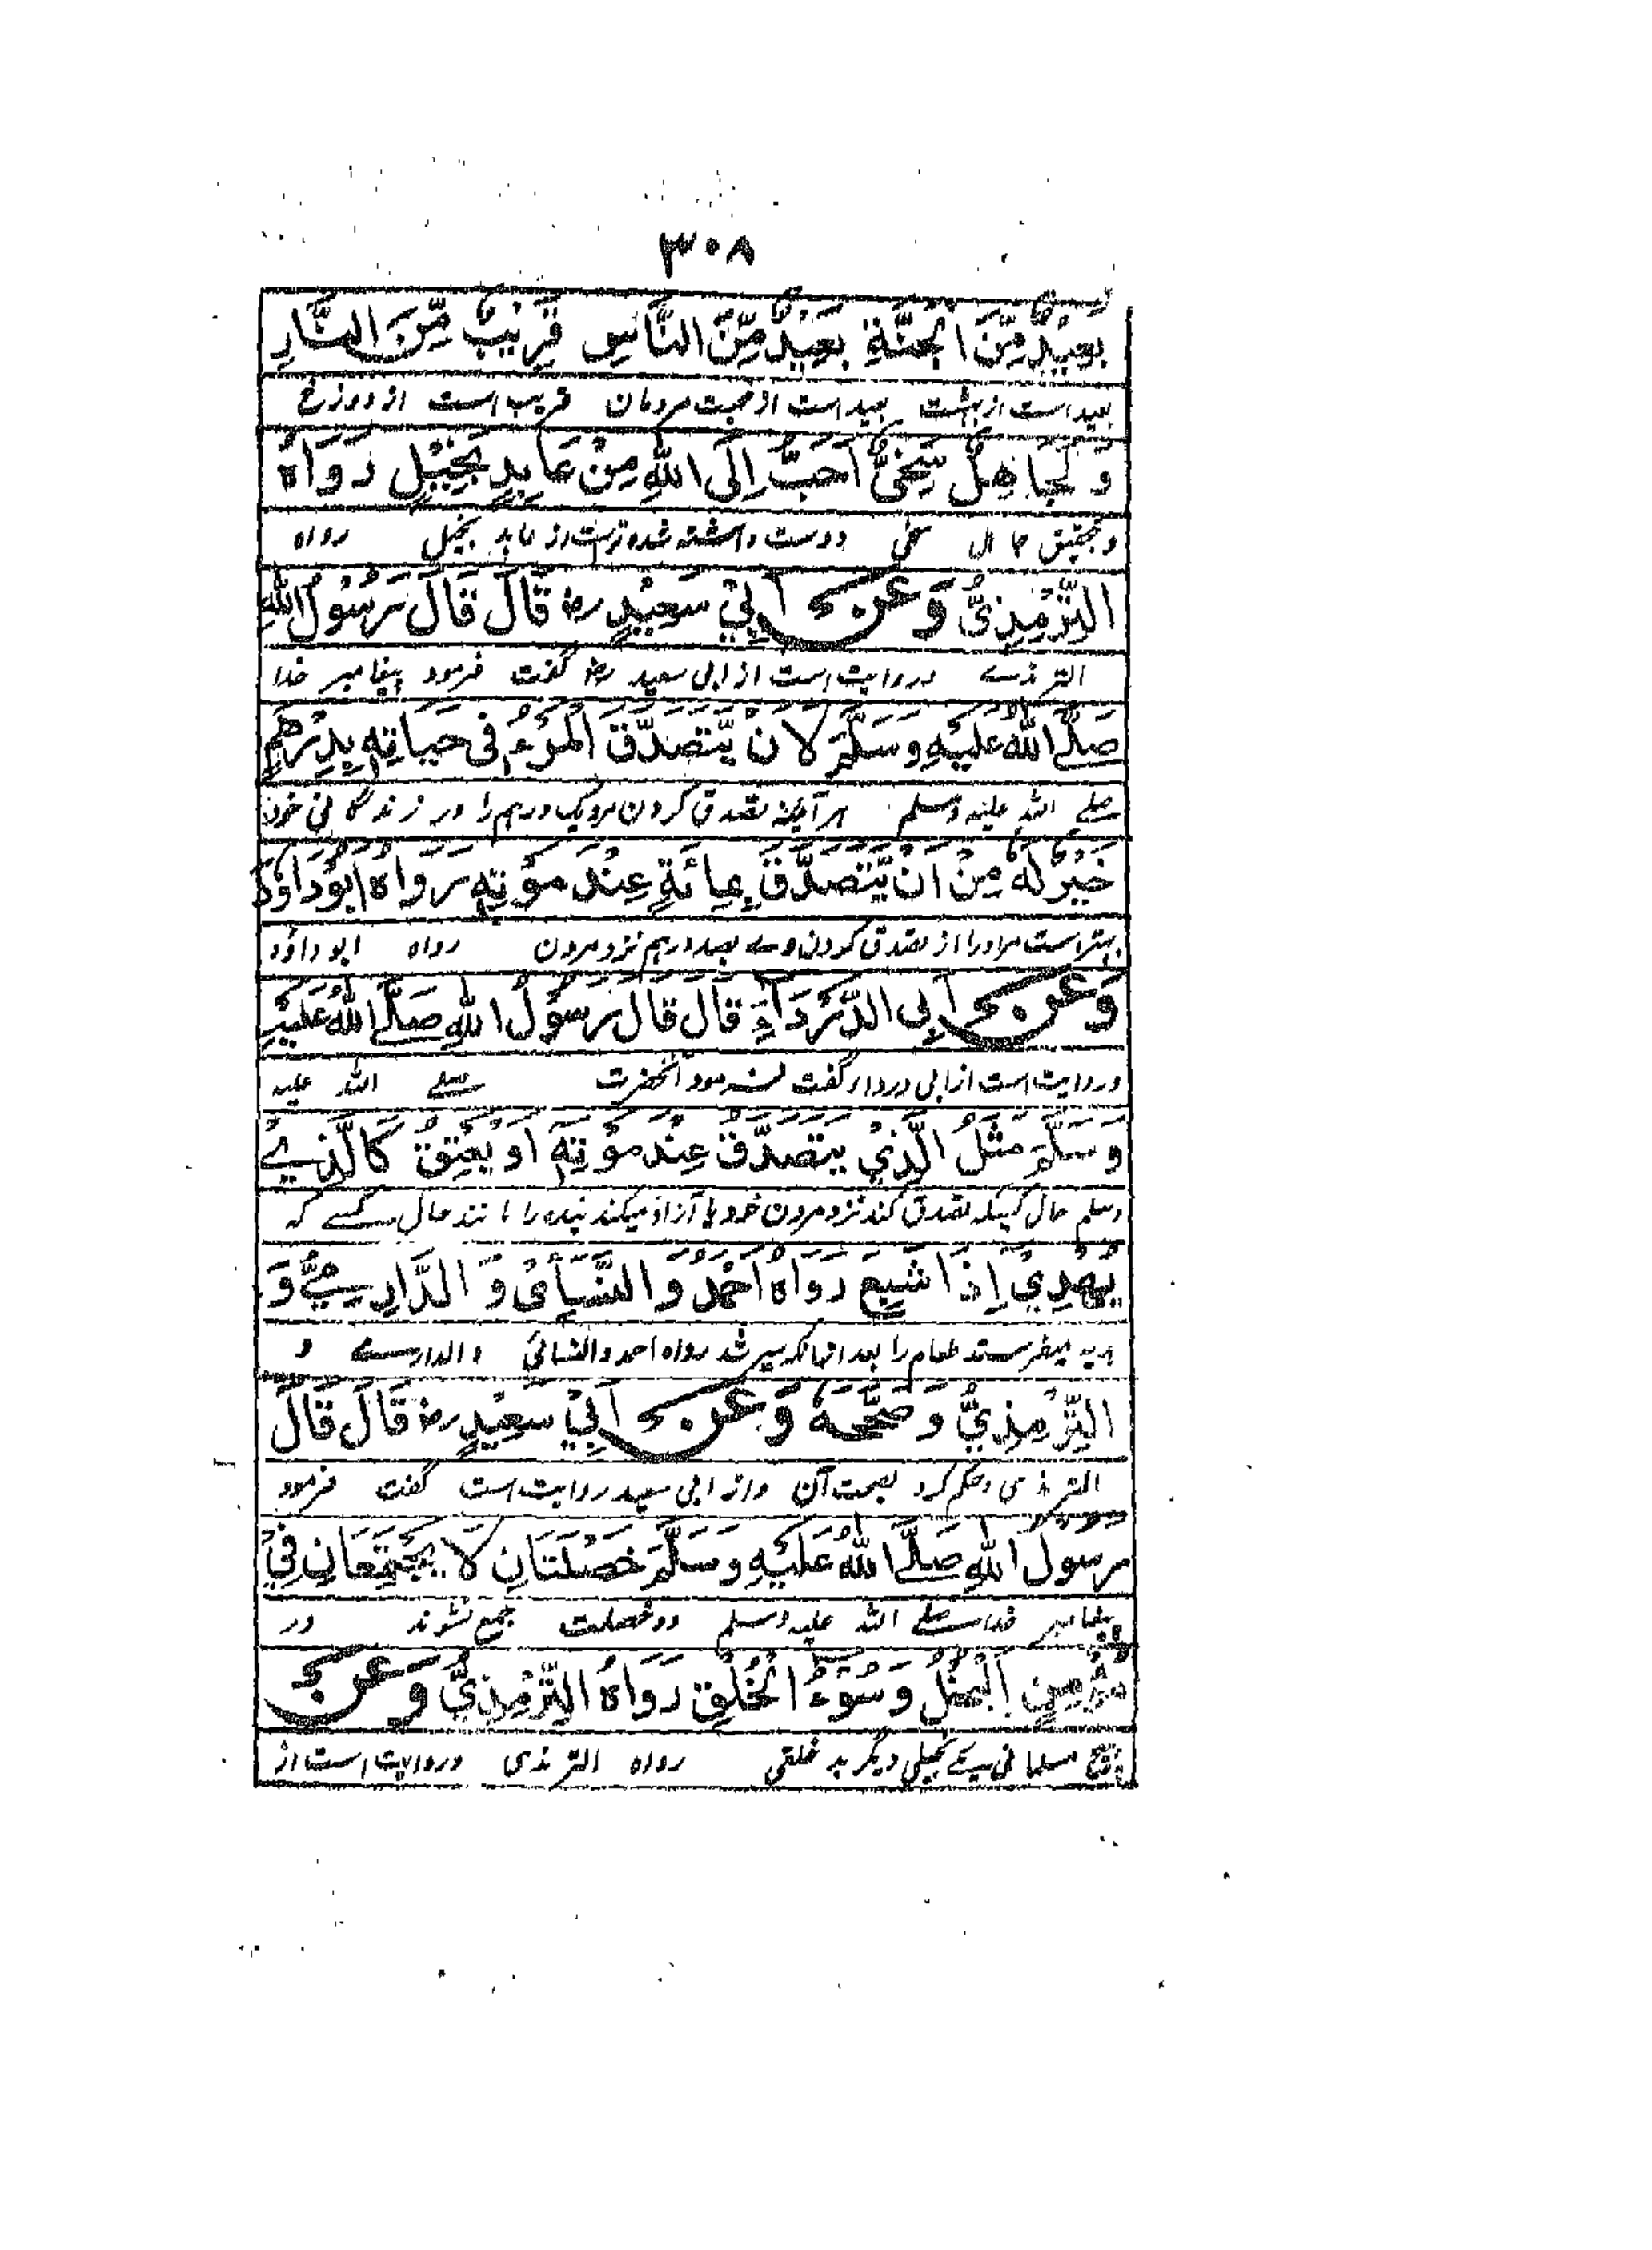 ۳۰۸
بَعِيْدٌ مِّنَ الْجَنَّةِ بَعِيْدٌ مِّنَ النَّاسِ قَرِيْبٌ مِّنَ النَّارِ
بعید است از بهشت بعید است از محبت مردمان قریب است از دوزخ
وَ لَجَاهِلٌ سَخِیٌّ اَحَبُّ اِلَی اللهِ مِنْ عَابِدٍ بَخِیْلٍ رَوَاهُ
و تحقیق جاهل سخی دوست داشته شده تر است از عابد بخیل رواه
التِّرْمِذِیُّ وَعَنْ اَبِیْ سَعِیْدٍ رض قَالَ قَالَ رَسُوْلُ اللهِ
الترمذے و روایت است از ابی سعید رض گفت فرمود پیغامبر خدا
صَلَّی اللهُ عَلَیْهِ وَسَلَّمَ لَاَنْ یَّتَصَدَّقَ الْمَرْءُ فِی حَیَاتِهٖ بِدِرْهَمٍ
صلے الله علیه وسلم هر آئینه تصدق کردن مرد یک درهم را در زندگانی خود
خَیْرٌ لَّهٗ مِنْ اَنْ یَّتَصَدَّقَ بِمِائَةٍ عِنْدَ مَوْتِهٖ رَوَاهُ اَبُوْدَاوٗدَ
بهتر است مر او را از تصدق کردن وے بصد درهم نزد مردن رواه ابو داؤد
وَعَنْ اَبِی الدَّرْدَآءِ قَالَ قَالَ رَسُوْلُ اللهِ صَلَّی اللهُ عَلَیْهِ
و روایت است از ابی دردار گفت فرمود آنحضرت صلے الله علیه
وَسَلَّمَ مَثَلُ الَّذِیْ یَتَصَدَّقُ عِنْدَ مَوْتِهٖ اَوْ یُعْتِقُ کَالَّذِیْ
وسلم حال کسیکه تصدق کند نزد مردن خود یا آزاد میکند بنده را مانند حال کسے که
یُهْدِیْ اِذَا شَبِعَ رَوَاهُ اَحْمَدُ وَ النَّسَائِیُ وَ الدَّارِمِیُّ وَ
هدیه میفرستد طعام را بعد انانکه سیر شد رواه احمد والنسائی والدارمے و
التِّرْمِذِیُّ وَصَحَّحَهٗ وَعَنْ اَبِیْ سَعِیْدٍ رض قَالَ قَالَ
الترمذی وحکم کرد بصحت آن و از ابی سعید روایت است گفت فرمود
رسول اللهِ صَلَّی اللهُ عَلَیْهِ وَسَلَّمَ خَصْلَتَانِ لَا یَجْتَمِعَانِ فِیْ
پیغامبر خدا صلے الله علیه وسلم دو خصلت جمع نشوند در
مُؤْمِنٍ اَلْبُخْلُ وَسُوْءُ الْخُلُقِ رَوَاهُ التِّرْمِذِیُّ وَعَنْ
هیچ مسلمانی یکے بخیلی دیگر بد خلقی رواه الترمذی و روایت است از